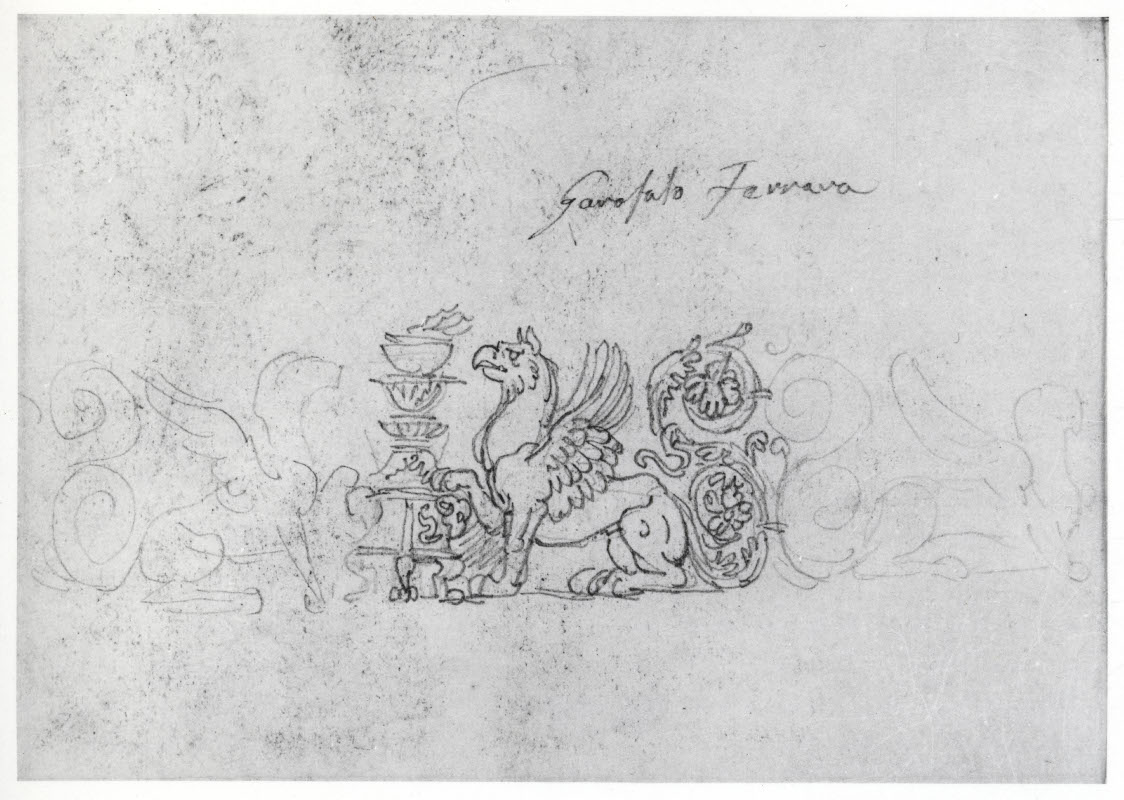 Garofalo Ferrara